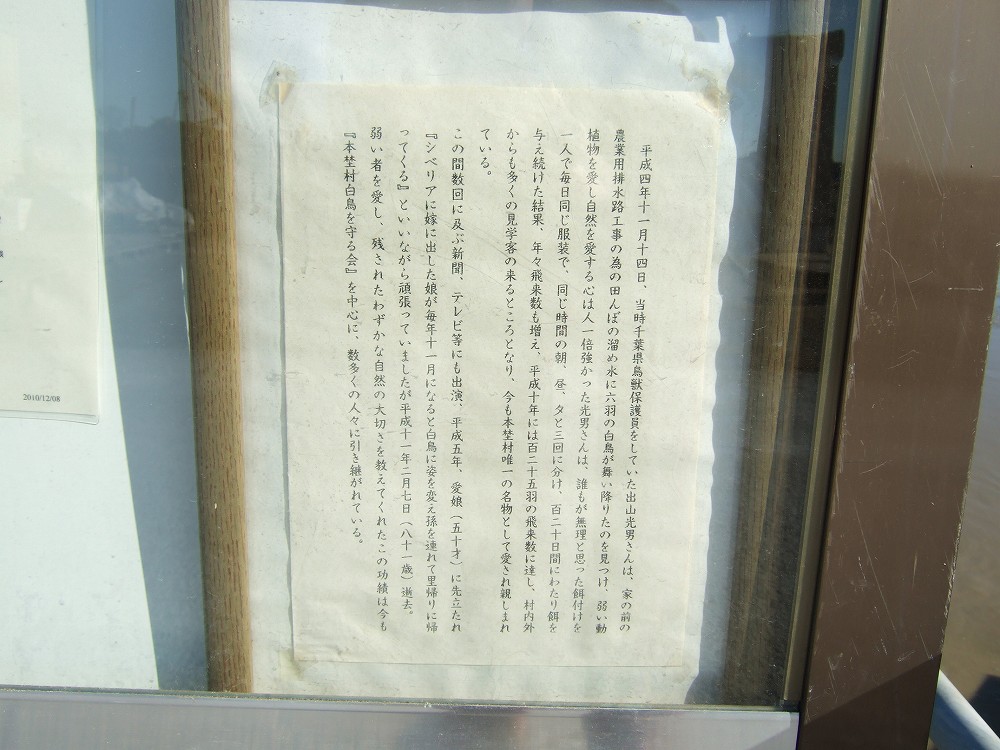 平成四年十一月十四日、当時千葉県鳥獣保護員をしていた出山光男さんは、家の前の
農業用排水路工事の為の田んぼの溜め水に六羽の白鳥が舞い降りたのを見つけ、弱い動
植物を愛し自然を愛する心は人一倍強かった光男さんは、誰もが無理と思った餌付けを
一人で毎日同じ服装で、同じ時間の朝、昼、夕と三回に分け、百二十日間にわたり餌を
与え続けた結果、年々飛来数も増え、平成十年には百二十五羽の飛来数に達し、村内外
からも多くの見学客の来るところとなり、今も本埜村唯一の名物として愛され親しまれ
ている。
この間数回に及ぶ新聞、テレビ等にも出演、平成五年、愛娘（五十才）に先立たれ
『シベリアに嫁に出した娘が毎年十一月になると白鳥に姿を変え孫を連れて里帰りに帰
ってくる』といいながら頑張っていましたが平成十一年二月七日（八十一歳）逝去。
弱い者を愛し、残されたわずかな自然の大切さを教えてくれたこの功績は今も
『本埜村白鳥を守る会』を中心に、数多くの人々に引き継がれている。
2010/12/08